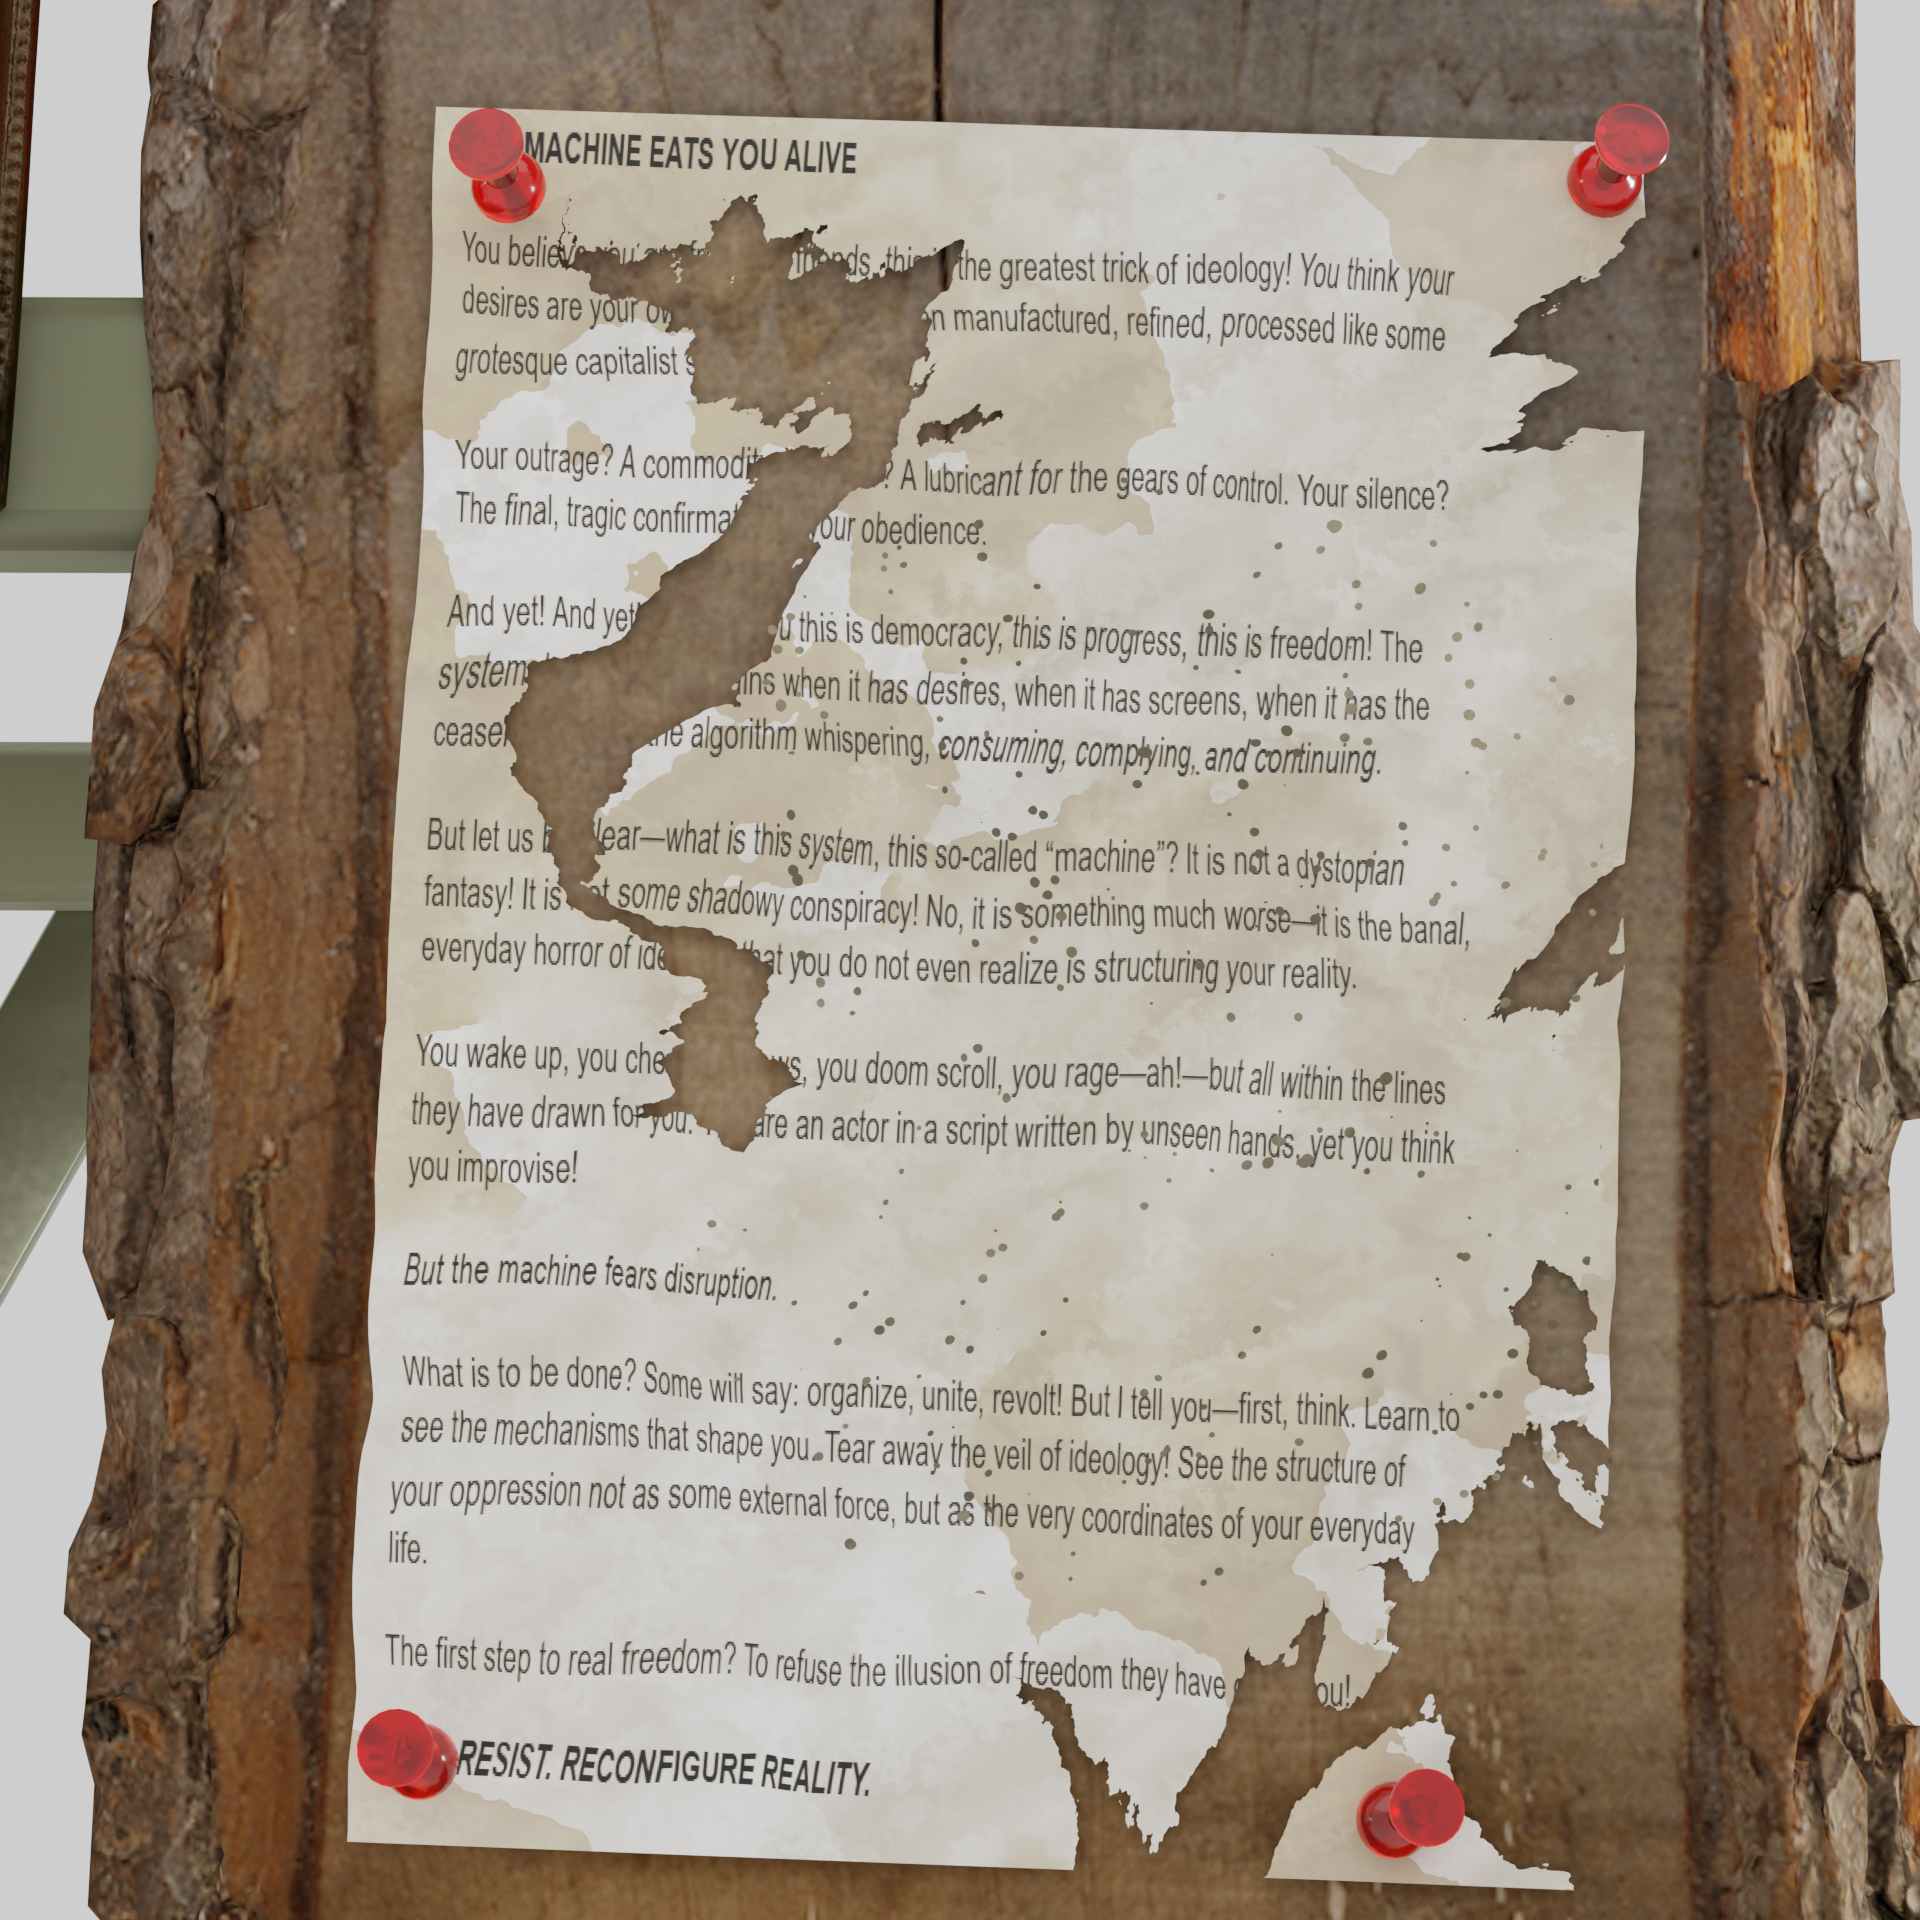 MACHINE EATS YOU ALIVE
You believe you are friends, this the greatest trick of ideology! You think your
desires are your manufactured, refined, processed like some
grotesque capitalist
Your outrage? A ? A lubricant for the gears of control. Your silence?
The final, tragic your obedience.
And yet! And yet this is democracy, this is progress, this is freedom! The
system when it has desires, when it has screens, when it has the
the algorithm whispering, consuming, complying, and continuing.
But let us —what is this system, this so-called “machine”? It is not a dystopian
fantasy! It is not some shadowy conspiracy! No, it is something much worse—it is the banal,
everyday horror of that you do not even realize is structuring your reality.
You wake up, you , you doom scroll, you rage—ah!—but all within the lines
they have drawn for you. are an actor in a script written by unseen hands, yet you think
you improvise!
But the machine fears disruption.
What is to be done? Some will say: organize, unite, revolt! But I tell you—first, think. Learn to
see the mechanisms that shape you. Tear away the veil of ideology! See the structure of
your oppression not as some external force, but as the very coordinates of your everyday
life.
The first step to real freedom? To refuse the illusion of freedom they have
RESIST. RECONFIGURE REALITY.